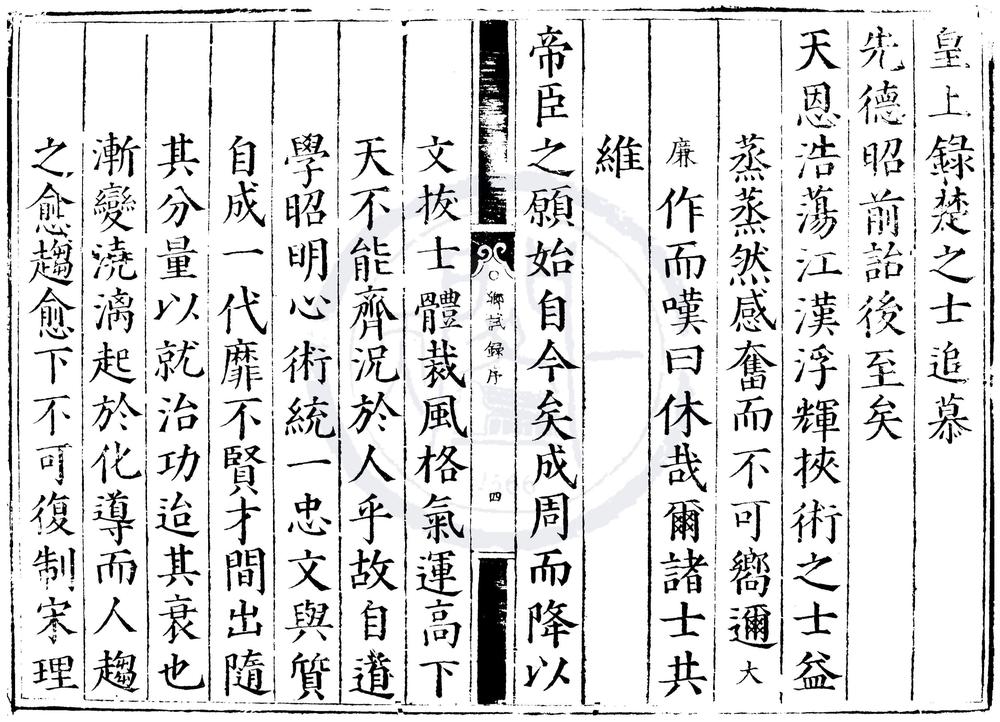 皇上錄楚之士追慕
先德昭前詒後至矣
天恩浩蕩江漢浮輝挾術之士益
蒸蒸然感奮而不可嚮邇大
廉作而嘆曰休哉爾諸士共
維
帝臣之願始自今矣成周而降以
鄉試錄序
四
文拔士體裁風格氣運高下
天不能齊況於人乎故自道
學昭明心術統一忠文與質
自成一代靡不賢才間出隨
其分量以就治功迨其衰也
漸變澆漓起於化導而人趨
之愈趨愈下不可復制宋理